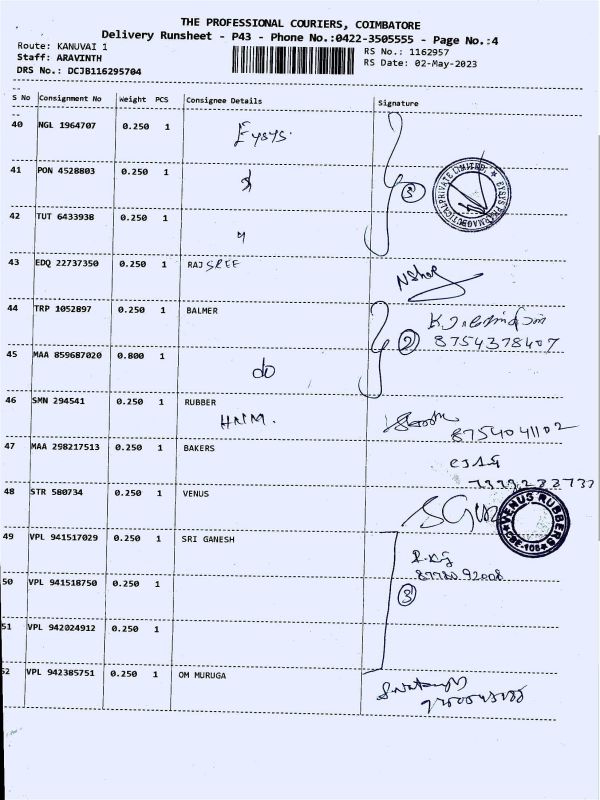 THE PROFESSIONAL COURIERS, COIMBATORE
Delivery Runsheet - P43 - Phone No.:0422-3505555 - Page No.:4
Route: KANUVAI 1
RS No.: 1162957
Staff: ARAVINTH
RS Date: 02-May-2023
DRS No.: DCJB116295704
S No Consignment No Weight PCS Consignee Details Signature
40 NGL 1964707 0.250 1 Eysys.
41 PON 4528803 0.250 1
3
42 TUT 6433938 0.250 1
43 EDQ 22737350 0.250 1 RAJ SREE
44 TRP 1052897 0.250 1 BALMER
2 8754378407
45 MAA 859687020 0.800 1 do
46 SMN 294541 0.250 1 RUBBER
HNM.
8754041102
47 MAA 298217513 0.250 1 BAKERS
48 STR 580734 0.250 1 VENUS
VENUS RUBBERS
49 VPL 941517029 0.250 1 SRI GANESH
50 VPL 941518750 0.250 1
3
51 VPL 942024912 0.250 1
52 VPL 942385751 0.250 1 OM MURUGA